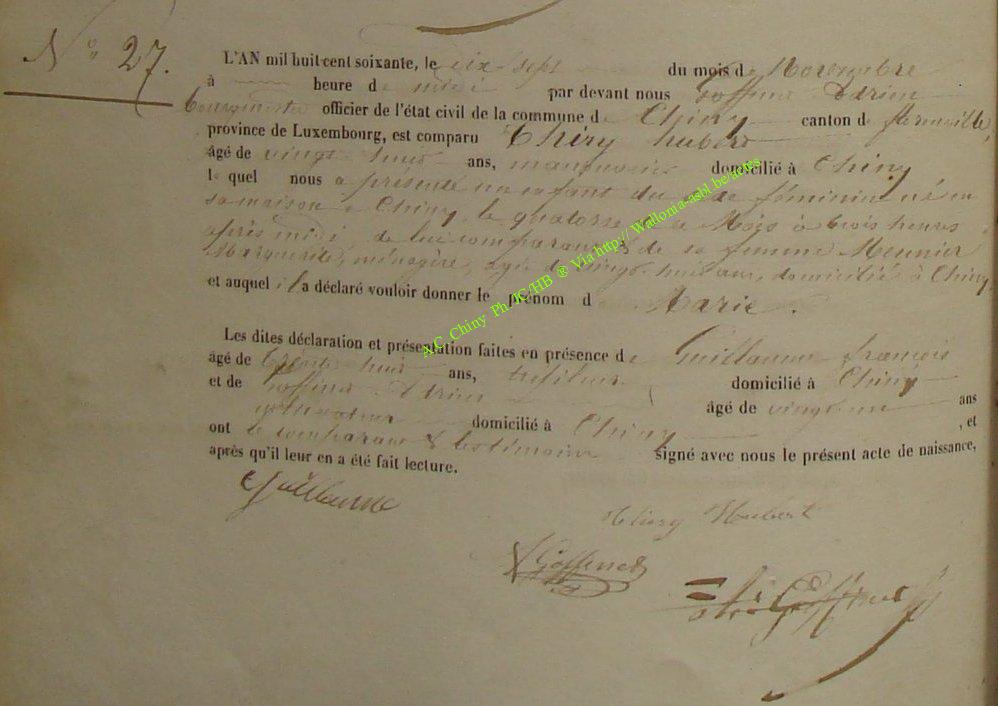 N° 27.
L'AN mil huit cent soixante, le dix sept du mois de Novembre
à heure de midi par devant nous Goffinet Adrien
bourgmestre officier de l'état civil de la commune de Chiny canton de Florenville,
province de Luxembourg, est comparu Thiry hubert
âgé de vingt huit ans, manoeuvrier domicilié à Chiny
lequel nous a présenté un enfant du de féminin né en
sa maison à Chiny, le quatorze à trois heures
après midi de lui comparant & de sa femme Meunier
Marguerite, ménagère, agée de vingt huit ans, domicilié à Chiny
et auquel il a déclaré vouloir donner le prénom d Marie.
Les dites déclaration et présentation faites en présence de Guillaume françois
âgé de trente huit ans, domicilié à Chiny
et de Goffinet Adrien âgé de vingt ans
cultivateur domicilié à Chiny , et
ont le comparant & les témoins signé avec nous le présent acte de naissance,
après qu'il leur en a été fait lecture.
Guillaume
Thiry Hubert
A Goffinet
Goffinet
A.C. Chiny Ph. JC/HB ® Via http// Wallonia-asbl.be/actes